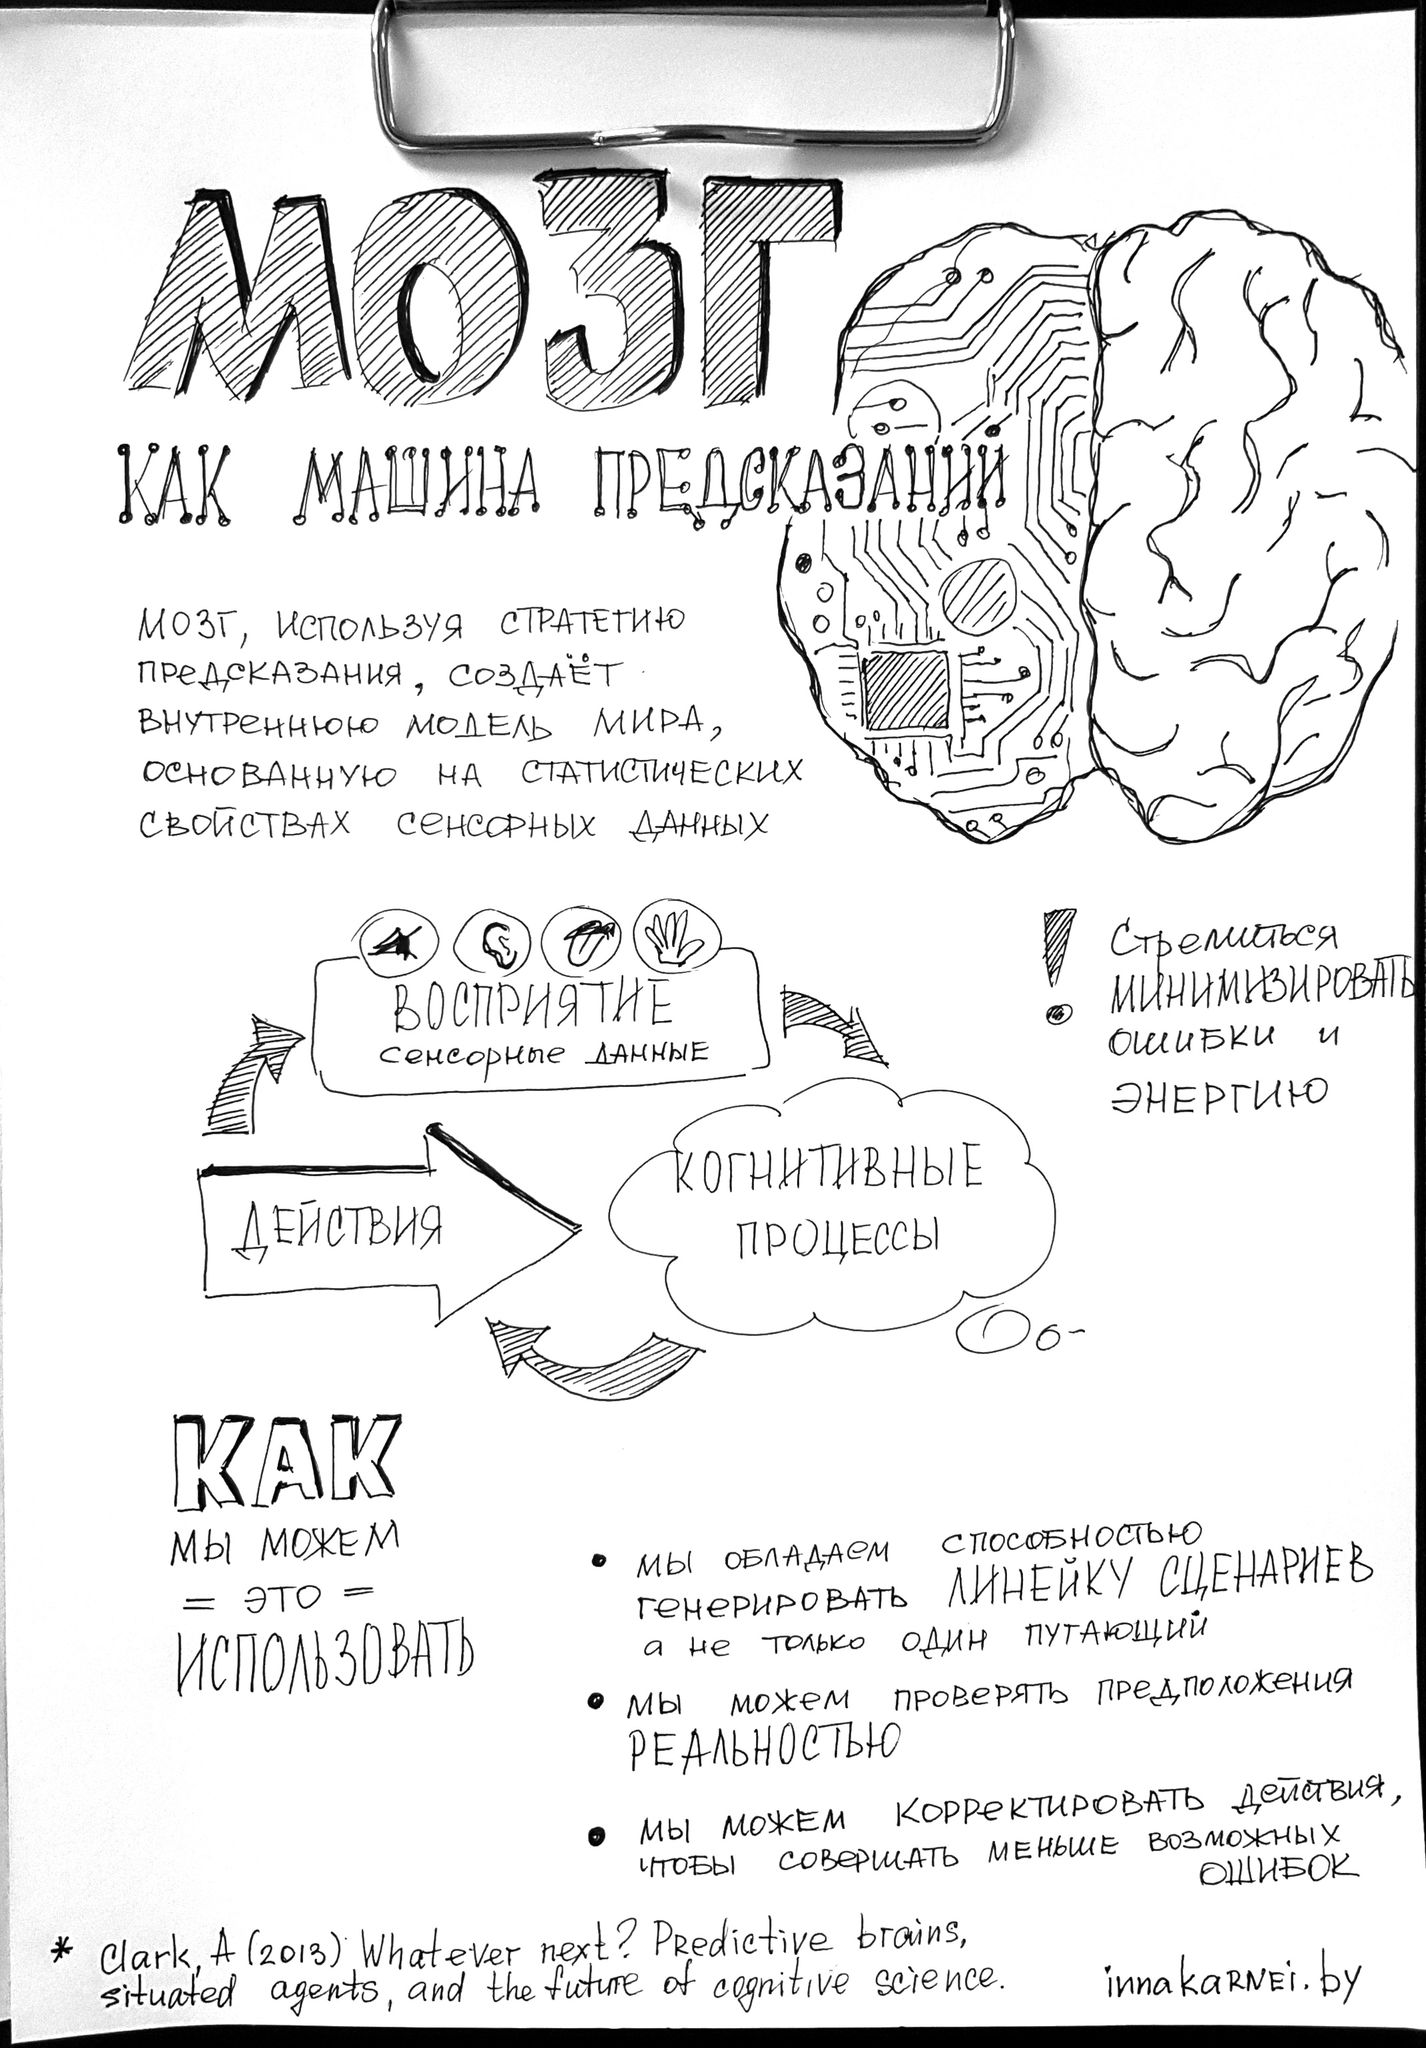 МОЗГ
КАК МАШИНА ПРЕДСКАЗАНИЙ
МОЗГ, ИСПОЛЬЗУЯ СТРАТЕГИЮ
ПРЕДСКАЗАНИЯ, СОЗДАЁТ
ВНУТРЕННЮЮ МОДЕЛЬ МИРА,
ОСНОВАННУЮ НА СТАТИСТИЧЕСКИХ
СВОЙСТВАХ СЕНСОРНЫХ ДАННЫХ
ВОСПРИЯТИЕ
сенсорные данные
Стремиться
МИНИМИЗИРОВАТЬ
ОШИБКИ И
ЭНЕРГИЮ
ДЕЙСТВИЯ
КОГНИТИВНЫЕ
ПРОЦЕССЫ
КАК
МЫ МОЖЕМ
= ЭТО =
ИСПОЛЬЗОВАТЬ
• МЫ ОБЛАДАЕМ СПОСОБНОСТЬЮ
ГЕНЕРИРОВАТЬ ЛИНЕЙКУ СЦЕНАРИЕВ
а не только ОДИН ПУГАЮЩИЙ
• МЫ МОЖЕМ ПРОВЕРЯТЬ ПРЕДПОЛОЖЕНИЯ
РЕАЛЬНОСТЬЮ
• МЫ МОЖЕМ КОРРЕКТИРОВАТЬ ДЕЙСТВИЯ,
ЧТОБЫ СОВЕРШАТЬ МЕНЬШЕ ВОЗМОЖНЫХ
ОШИБОК
* Clark, A (2013) Whatever next? Predictive brains,
situated agents, and the future of cognitive science.
innakarnei.by